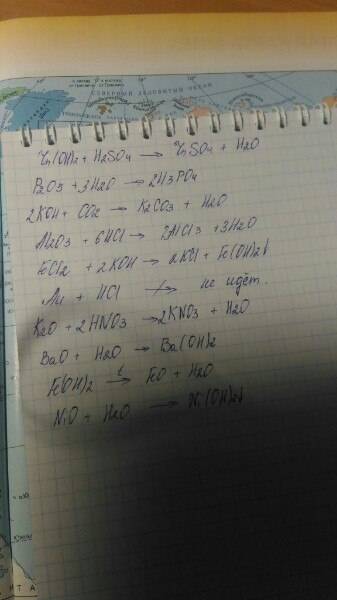 СЕВЕРНЫЙ ЛЕДОВИТЫЙ ОКЕАН
Zn(OH)2 + H2SO4 → ZnSO4 + H2O
P2O3 + 3H2O → 2H3PO4
2KOH + CO2 → K2CO3 + H2O
Al2O3 + 6HCl → 2AlCl3 + 3H2O
FeCl2 + 2KOH → 2KCl + Fe(OH)2↓
Au + HCl ↛ не идёт.
K2O + 2HNO3 → 2KNO3 + H2O
BaO + H2O → Ba(OH)2
Fe(OH)2 t→ FeO + H2O
NiO + H2O → Ni(OH)2↓